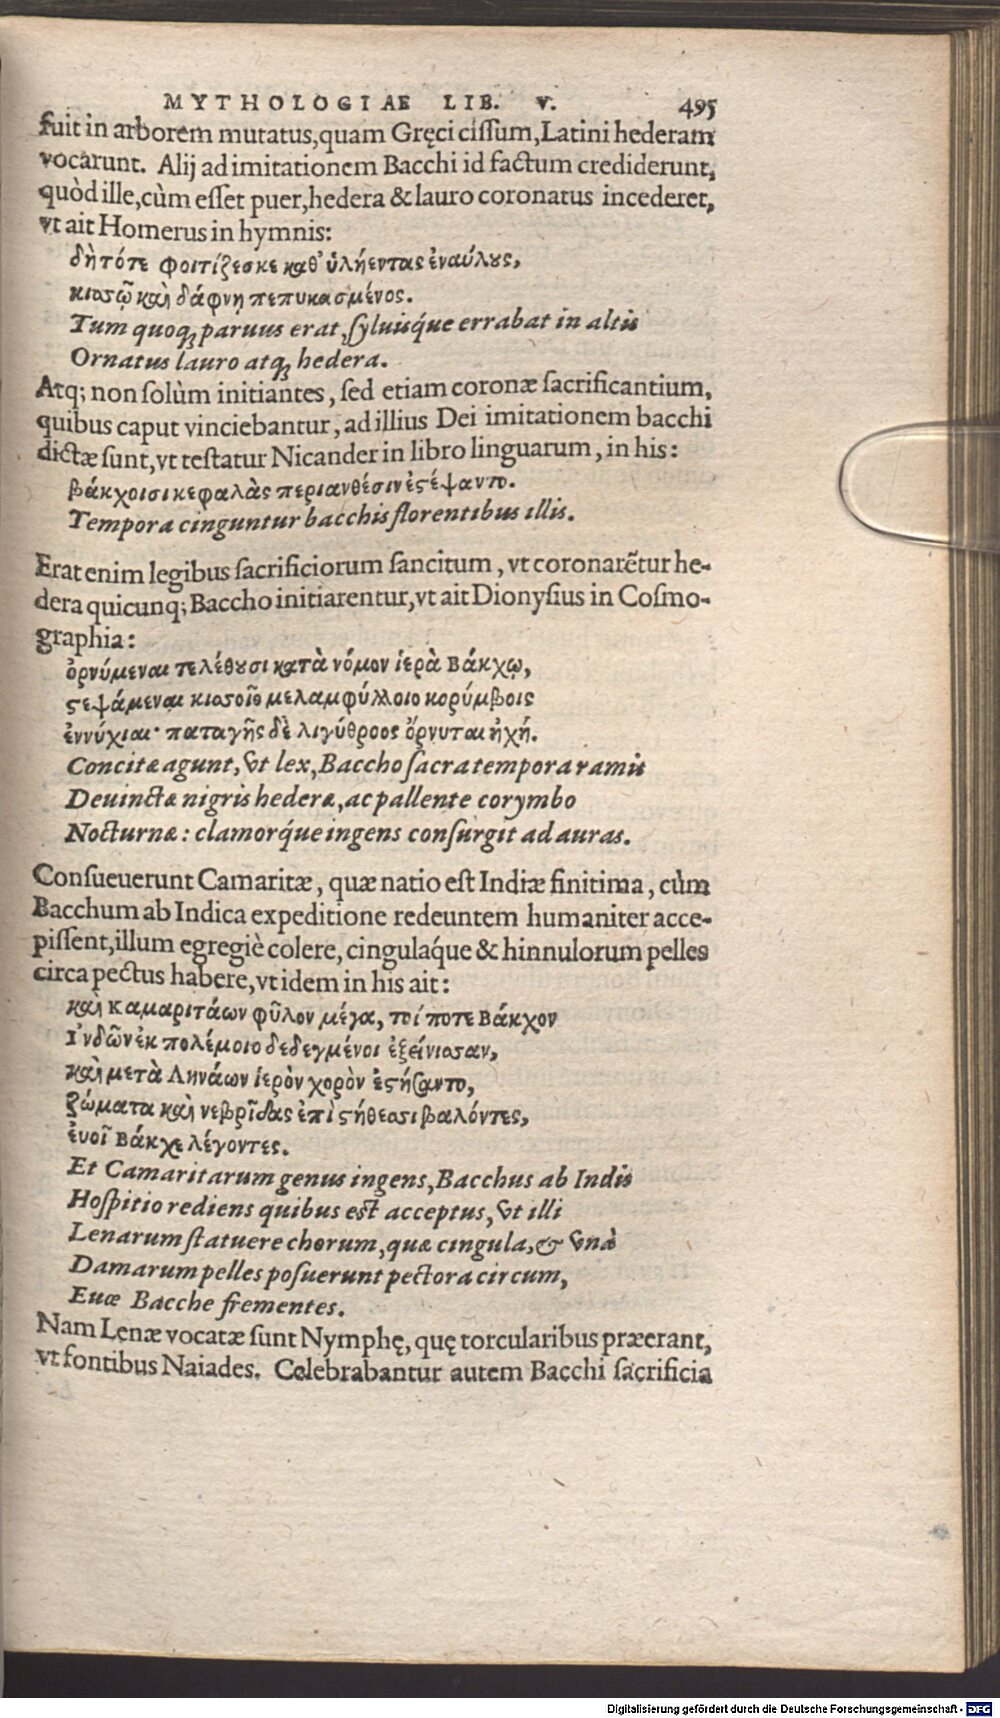 MYTHOLOGIAE LIB. V. 495
fuit in arborem mutatus, quam Gręci cissum, Latini hederam
vocarunt. Alij ad imitationem Bacchi id factum crediderunt,
quòd ille, cùm esset puer, hedera & lauro coronatus incederet,
vt ait Homerus in hymnis:
δὴ τότε φοιτίζεσκε καθ' ὑλήεντας ἐναύλους,
κισσῷ καὶ δάφνῃ πεπυκασμένος.
Tum quoq; paruus erat, syluisq́ue errabat in altis
Ornatus lauro atq; hedera.
Atq; non solùm initiantes, sed etiam coronæ sacrificantium,
quibus caput vinciebantur, ad illius Dei imitationem bacchi
dictæ sunt, vt testatur Nicander in libro linguarum, in his:
βάκχοισι κεφαλὰς περιανθέσιν ἐστέψαντο.
Tempora cinguntur bacchis florentibus illis.
Erat enim legibus sacrificiorum sancitum, vt coronarētur he-
dera quicunq; Baccho initiarentur, vt ait Dionysius in Cosmo-
graphia:
ὀρνύμεναι τελέθουσι κατὰ νόμον ἱερὰ Βάκχῳ,
στεψάμεναι κισσοῖο μελαμφύλλοιο κορύμβοις
ἐννύχιαι· παταγῆς δὲ λιγύθροος ὄρνυται ἠχή.
Concitæ agunt, vt lex, Baccho sacra tempora ramis
Deuinctæ nigris hederæ, ac pallente corymbo
Nocturnæ: clamorq́ue ingens consurgit ad auras.
Consueuerunt Camaritæ, quæ natio est Indiæ finitima, cùm
Bacchum ab Indica expeditione redeuntem humaniter acce-
pissent, illum egregiè colere, cingulaq́ue & hinnulorum pelles
circa pectus habere, vt idem in his ait:
καὶ Καμαριτάων φῦλον μέγα, τοί ποτε Βάκχον
Ἰνδῶν ἐκ πολέμοιο δεδεγμένοι ἐξείνισσαν,
καὶ μετὰ Ληνάων ἱερὸν χορὸν ἐστήσαντο,
ζώματα καὶ νεβρῖδας ἐπὶ στήθεσσι βαλόντες,
ἐυοῖ Βάκχε λέγοντες.
Et Camaritarum genus ingens, Bacchus ab Indis
Hospitio rediens quibus est acceptus, vt illi
Lenarum statuere chorum, quæ cingula, & vnà
Damarum pelles posuerunt pectora circum,
Euœ Bacche frementes.
Nam Lenæ vocatæ sunt Nymphę, quę torcularibus præerant,
vt fontibus Naiades. Celebrabantur autem Bacchi sacrificia
Digitalisierung gefördert durch die Deutsche Forschungsgemeinschaft - DFG